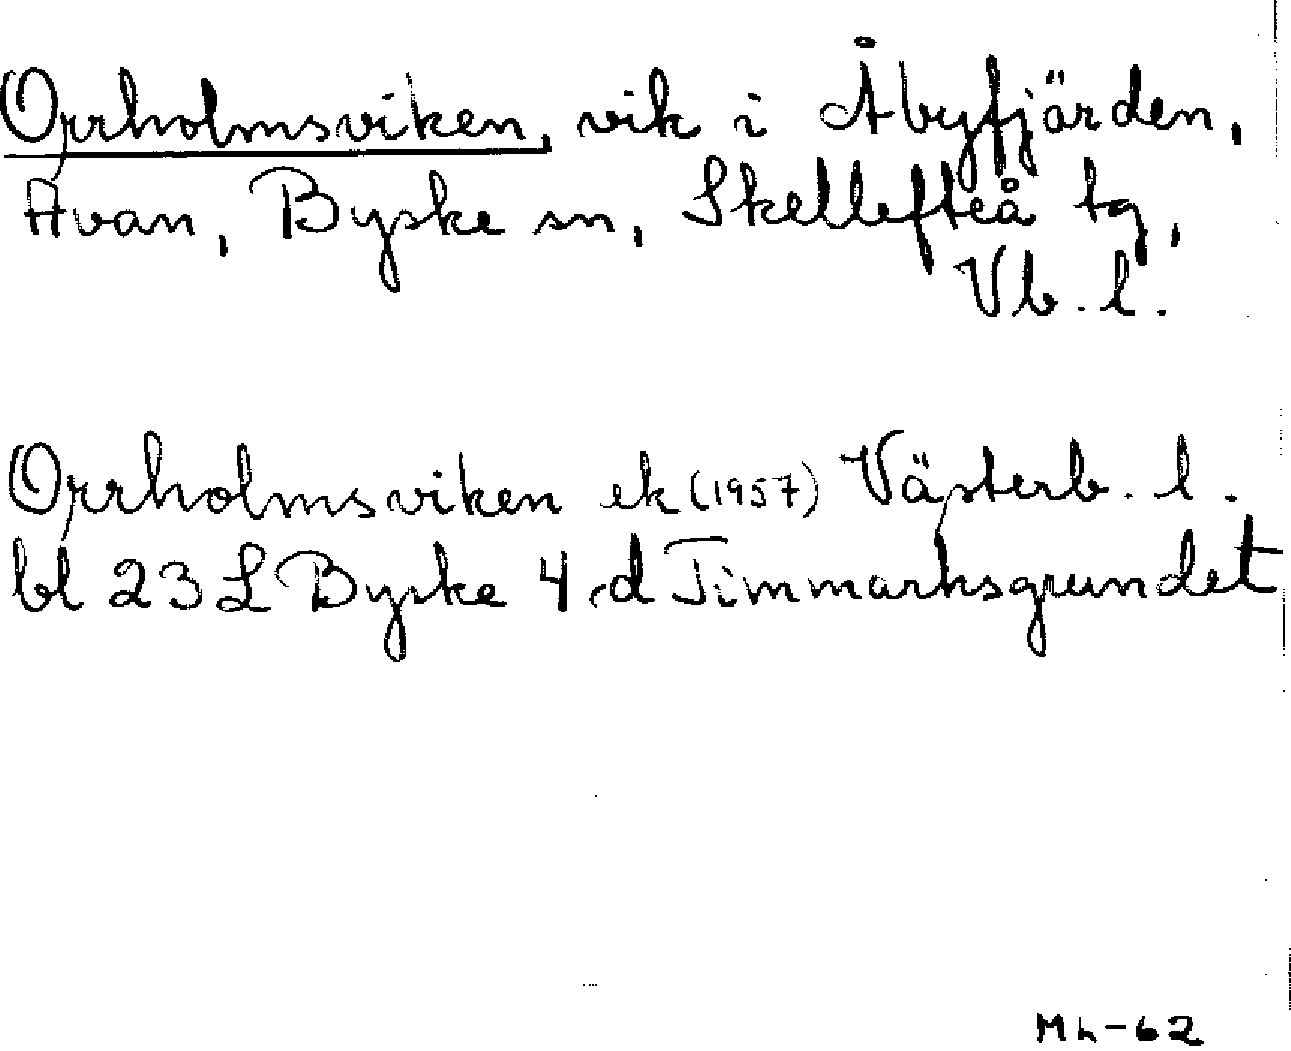 Orrholmsviken, vik i Åbyfjärden,
Avan, Byske sn, Skellefteå tg,
Vb. l.
Orrholmsviken ek (1957) Västerb. l.
bl 23 L Byske 4 d Timmarksgrundet
Mh-62